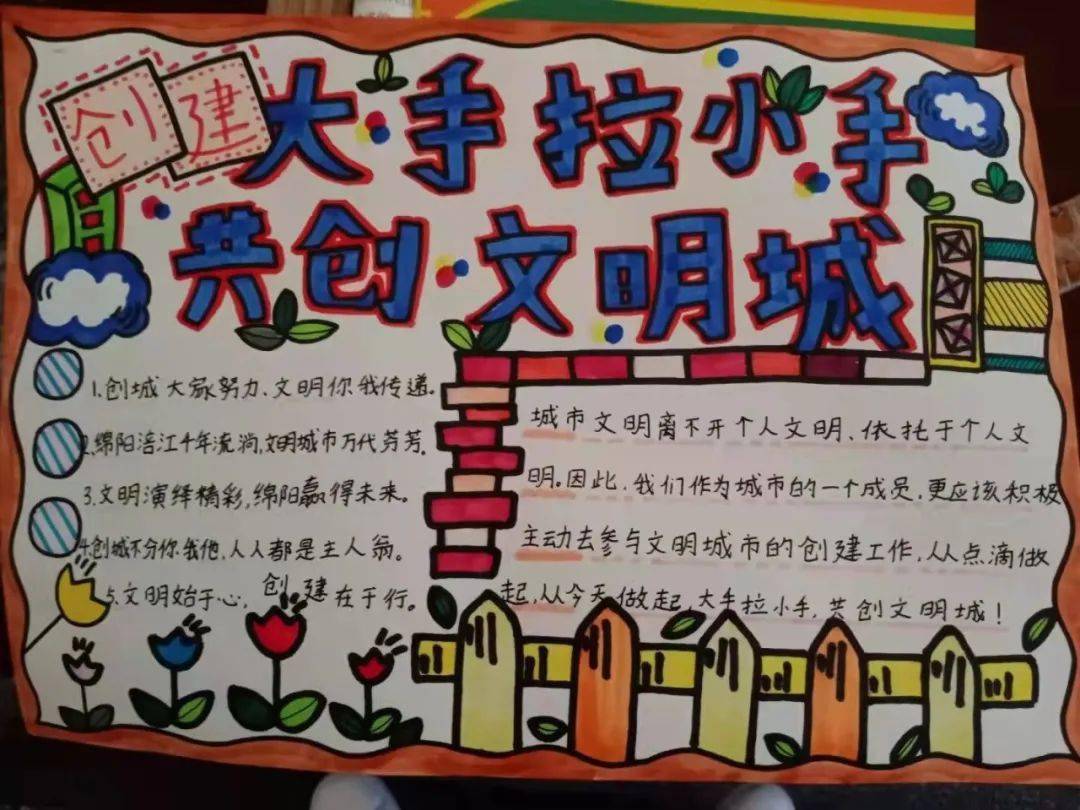 创建
大手拉小手
共创文明城
1.创城大家努力、文明你我传递。
2.绵阳涪江千年流淌,文明城市万代芳芳.
3.文明演绎精彩,绵阳赢得未来。
4.创城不分你我他,人人都是主人翁。
5.文明始于心,创建在于行。
城市文明离不开个人文明、依托于个人文
明。因此,我们作为城市的一个成员,更应该积极
主动去参与文明城市的创建工作,从点滴做
起,从今天做起,大手拉小手,共创文明城!